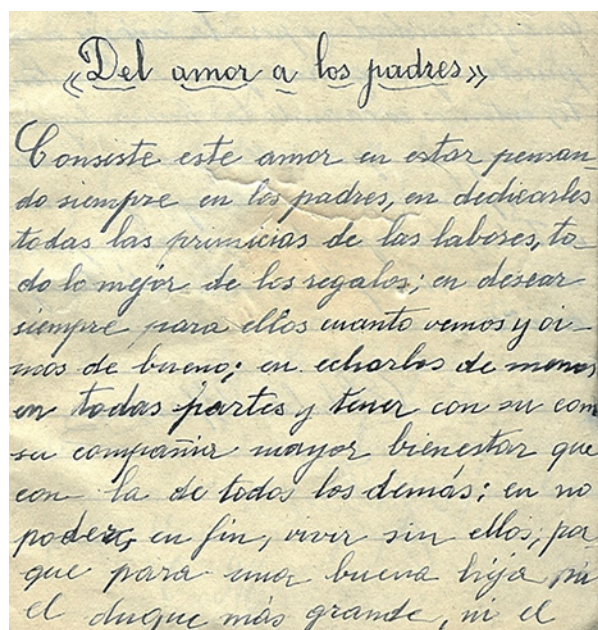 «Del amor a los padres»
Consiste este amor en estar pensan-
do siempre en los padres, en dedicarles
todas las primicias de las labores, to-
do lo mejor de los regalos; en desear
siempre para ellos cuanto vemos y oi-
mos de bueno; en echarlos de menos
en todas partes y tener con su com
su compañia mayor bienestar que
con la de todos los demás; en no
poder, en fin, vivir sin ellos; por
que para una buena hija ni
el duque más grande, ni el